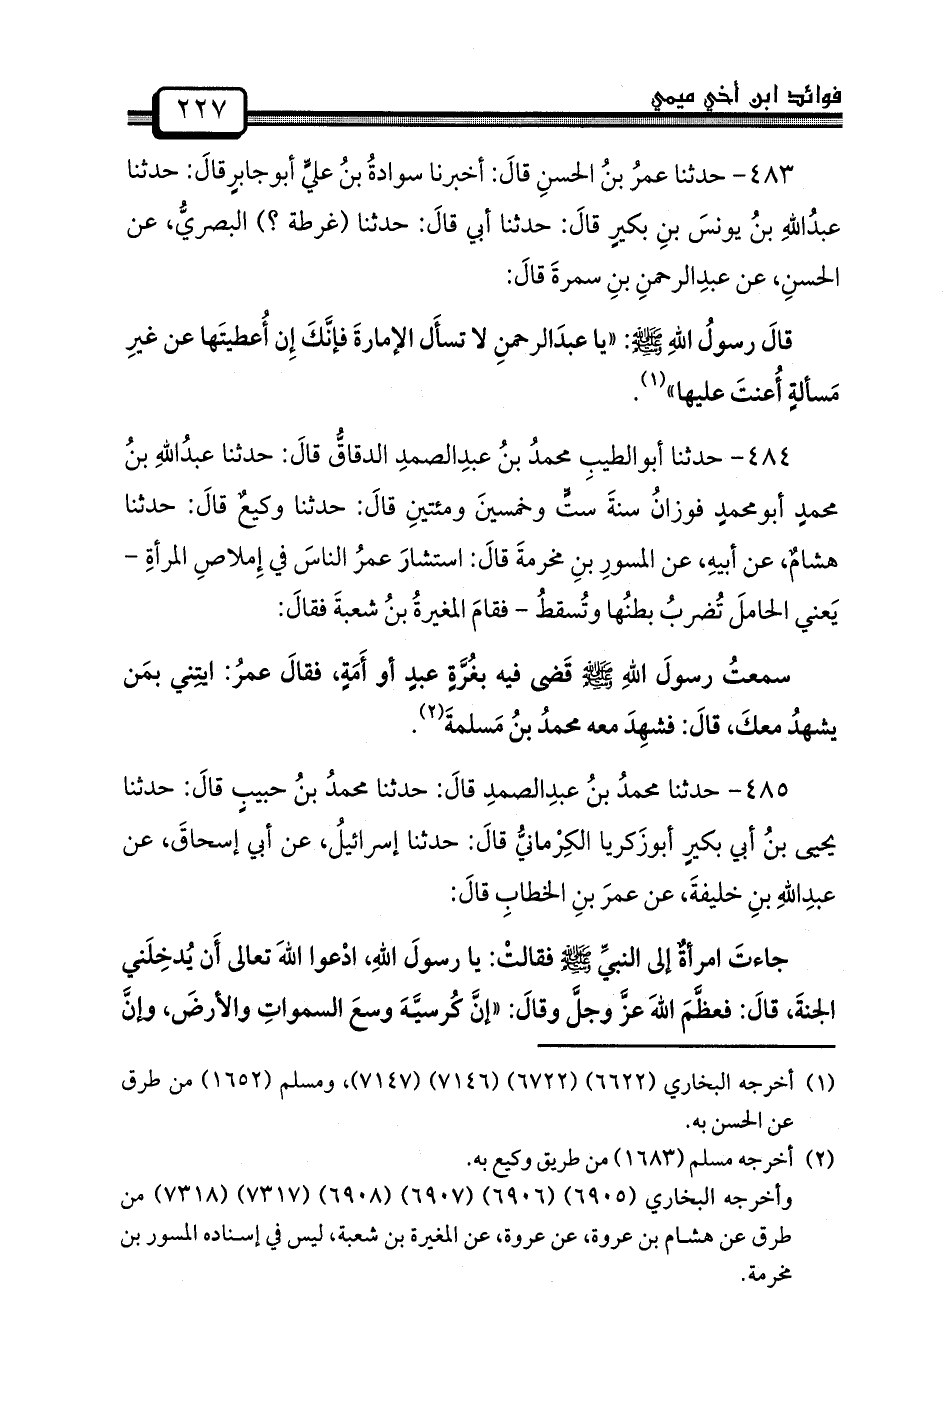 فوائد ابن أخي ميمي
٢٢٧
٤٨٣- حدثنا عمرُ بنُ الحسنِ قالَ: أخبرنا سوادةُ بنُ عليٍّ أبوجابرٍ قالَ: حدثنا
عبدُاللهِ بنُ يونسَ بنِ بكيرٍ قالَ: حدثنا أبي قالَ: حدثنا (غرطة ؟) البصريُّ، عن
الحسنِ، عن عبدِالرحمنِ بنِ سمرةَ قالَ:
قالَ رسولُ اللهِ ﷺ: «يا عبدَالرحمنِ لا تسأَل الإمارةَ فإنَّكَ إن أُعطيتَها عن غيرِ
مَسألةٍ أُعنتَ عليها»(١).
٤٨٤- حدثنا أبوالطيبِ محمدُ بنُ عبدِالصمدِ الدقاقُّ قالَ: حدثنا عبدُاللهِ بنُ
محمدٍ أبومحمدٍ فوزانُ سنةَ ستٍّ وخمسينَ ومئتينِ قالَ: حدثنا وكيعٌ قالَ: حدثنا
هشامٌ، عن أبيهِ، عن المسورِ بنِ مخرمةَ قالَ: استشارَ عمرُ الناسَ في إِملاصِ المرأةِ -
يَعني الحاملَ تُضربُ بطنُها وتُسقطُ - فقامَ المغيرةُ بنُ شعبةَ فقالَ:
سمعتُ رسولَ اللهِ ﷺ قَضى فيه بغُرَّةٍ عبدٍ أو أَمَةٍ، فقالَ عمرُ: ايتِني بمَن
يشهدُ معكَ، قالَ: فشهِدَ معه محمدُ بنُ مَسلمةَ(٢).
٤٨٥- حدثنا محمدُ بنُ عبدِالصمدِ قالَ: حدثنا محمدُ بنُ حبيبٍ قالَ: حدثنا
يحيى بنُ أبي بكيرٍ أبوزَكريا الكِرْمانيُّ قالَ: حدثنا إسرائيلُ، عن أبي إسحاقَ، عن
عبدِاللهِ بنِ خليفةَ، عن عمرَ بنِ الخطابِ قالَ:
جاءتَ امرأةٌ إلى النبيِّ ﷺ فقالتْ: يا رسولَ اللهِ، ادْعوا اللهَ تعالى أَن يُدخِلَني
الجنةَ، قالَ: فعظَّمَ اللهَ عزَّ وجلَّ وقالَ: «إنَّ كُرسيَّهَ وسعَ السمواتِ والأرضَ، وإنَّ
(١) أخرجه البخاري (٦٦٢٢) (٦٧٢٢) (٧١٤٦) (٧١٤٧)، ومسلم (١٦٥٢) من طرق
عن الحسن به.
(٢) أخرجه مسلم (١٦٨٣) من طريق وكيع به.
وأخرجه البخاري (٦٩٠٥) (٦٩٠٦) (٦٩٠٧) (٦٩٠٨) (٧٣١٧) (٧٣١٨) من
طرق عن هشام بن عروة، عن عروة، عن المغيرة بن شعبة، ليس في إسناده المسور بن
مخرمة.